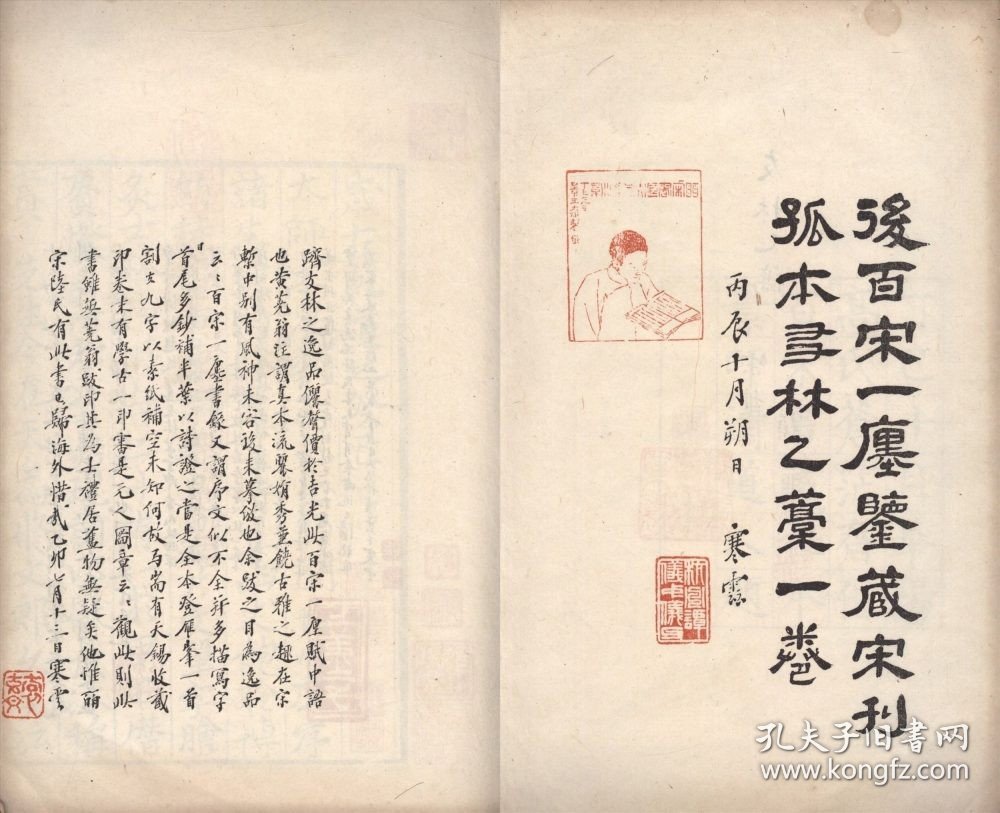 後百宋一廛鑒藏宋刊
孤本友林乙藁一卷
丙辰十月朔日 寒雲
躋友林之逸品儷聲價於吉光此百宋一廛賦中語
也黄蕘翁注謂真本流麗娟秀兼饒古雅之趣在宋
槧中別有風神未容後來摹倣也余跋之目為逸品
云云百宋一廛書錄又謂序文似不全并多描寫字
首尾多鈔補半葉以詩證之當是全本登雁峯一首
割去九字以素紙補空未知何故五崙有天錫收藏
印卷末有學古一印審是元人圖章云云觀此則此
書雖無蕘翁跋印其為士禮居舊物無疑矣他惟丽
宋陸氏有此書已歸海外惜哉乙卯七月十三日寒雲
孔夫子旧书网
www.kongfz.com